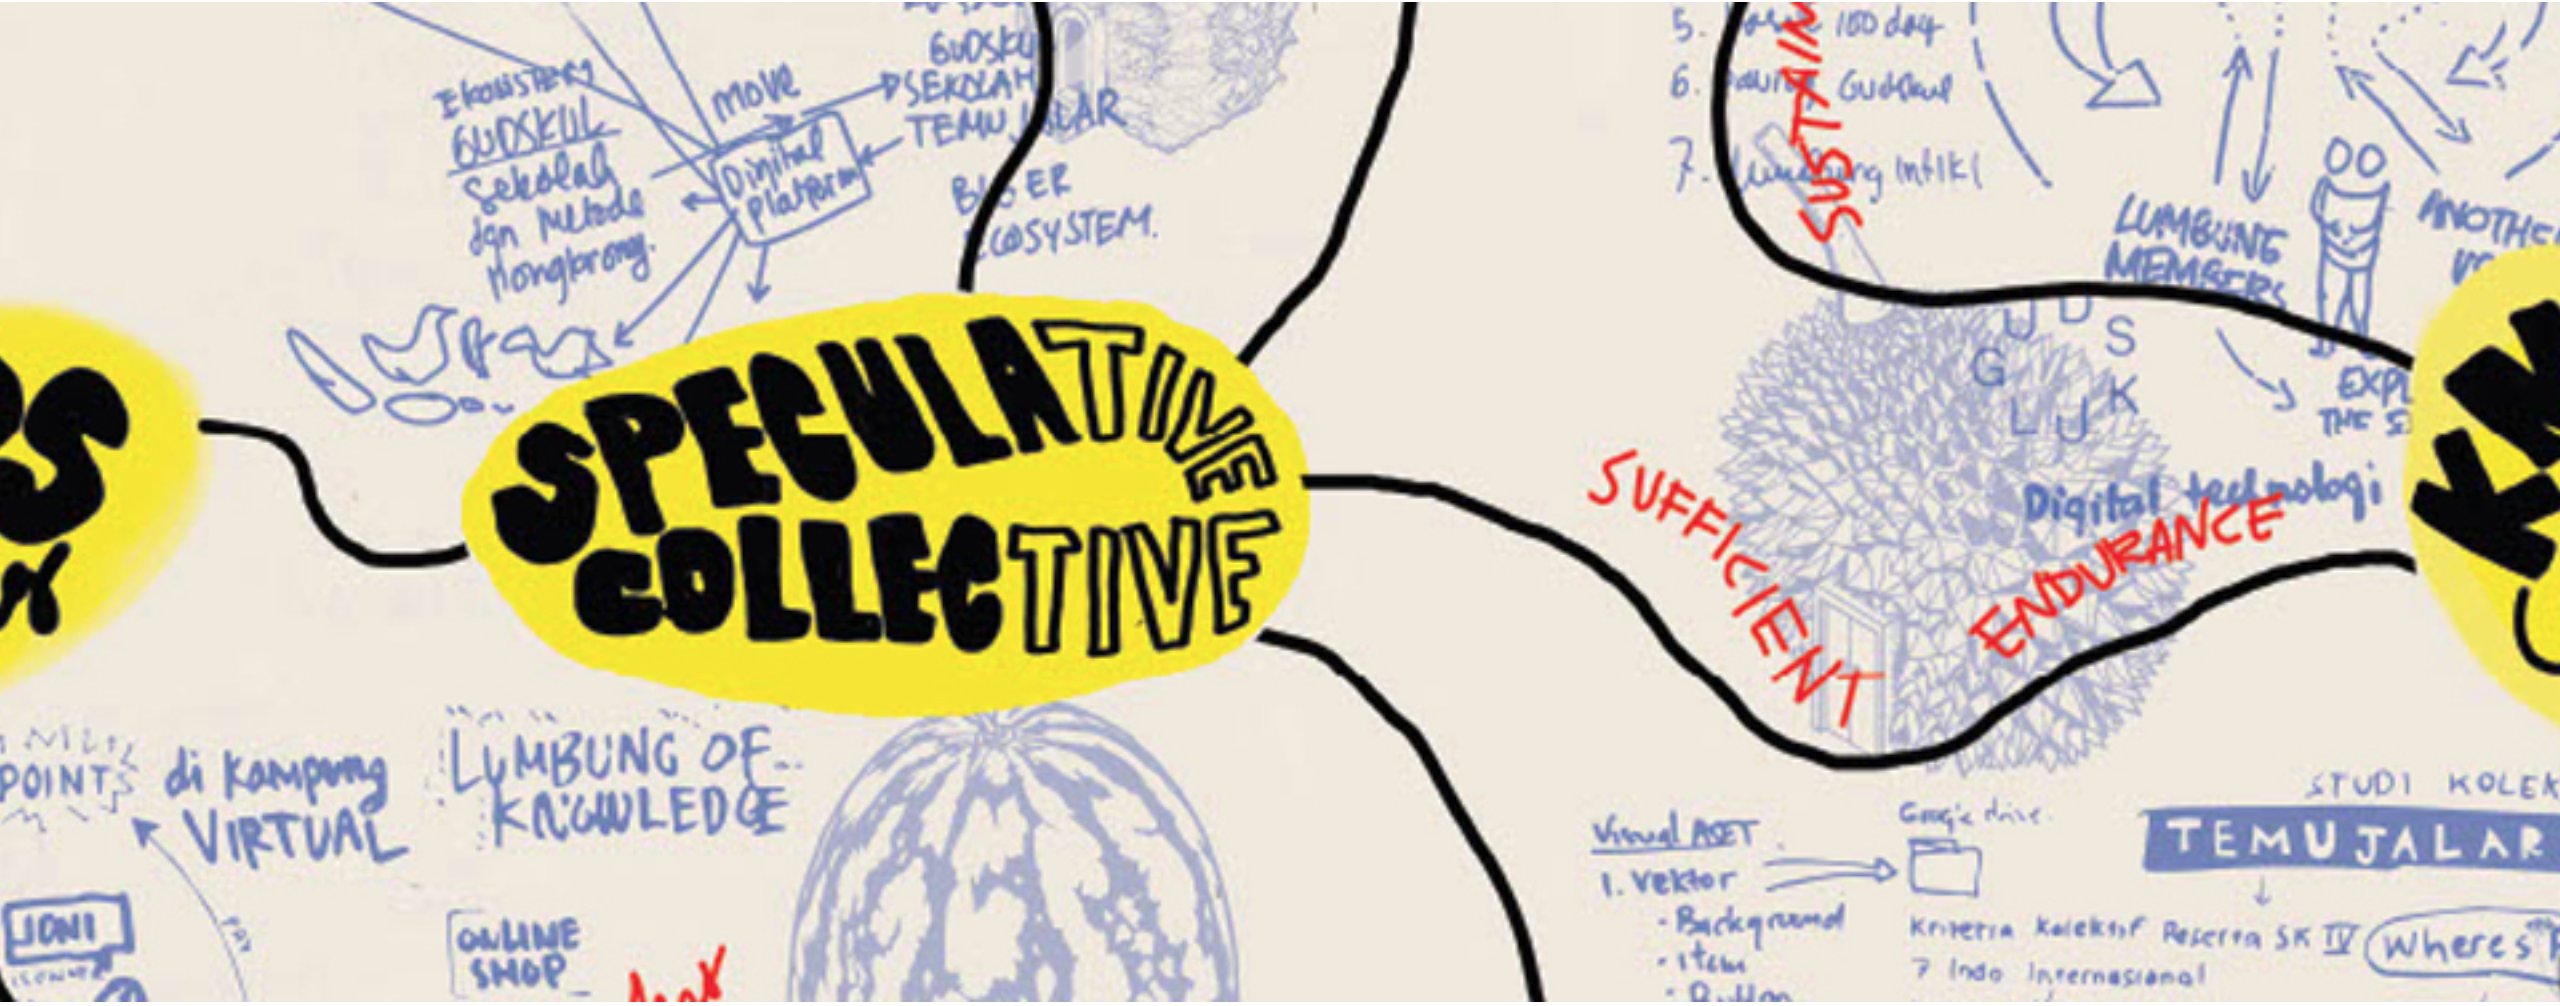 EKOSISTEM
GUDSKUL
Sekolah
dan Metode
Nongkrong.
MOVE
Digital
Platform
GUDSKU
SEKOLAH
TEMU JALAR
ECOSYSTEM.
5. 100 day
6. Gudskul
7.
SUSTAIN
LUMBUNG
MEMBERS
ANOTHE
GUDSKUL
EXPL
THE S
SPECULATIVE
COLLECTIVE
SUFFICIENT
Digital technologi
ENDURANCE
POINT
di Kampung
VIRTUAL
LUMBUNG OF
KNOWLEDGE
JONI
PAY
ONLINE
SHOP
Visual ASET
1. Vektor
- Background
- Item
- Button
Google drive.
STUDI KOLEK
TEMUJALAR
Kriteria Kolektif Peserta SK IV
7 Indo Internasional
Wheres